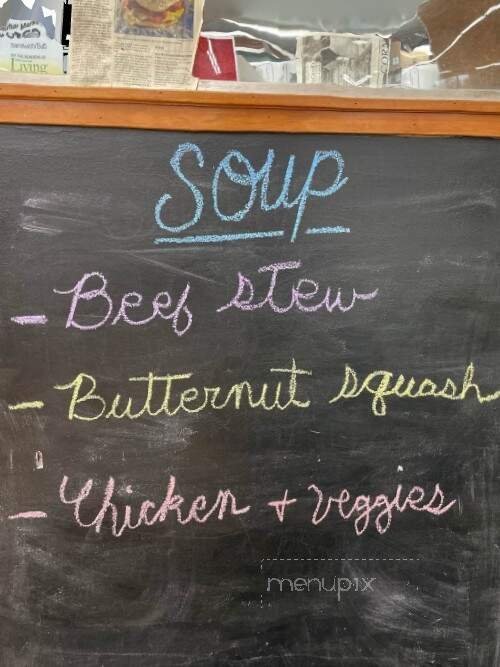 Living
SOUP
- Beef stew
- Butternut squash
- Chicken + veggies
menupix